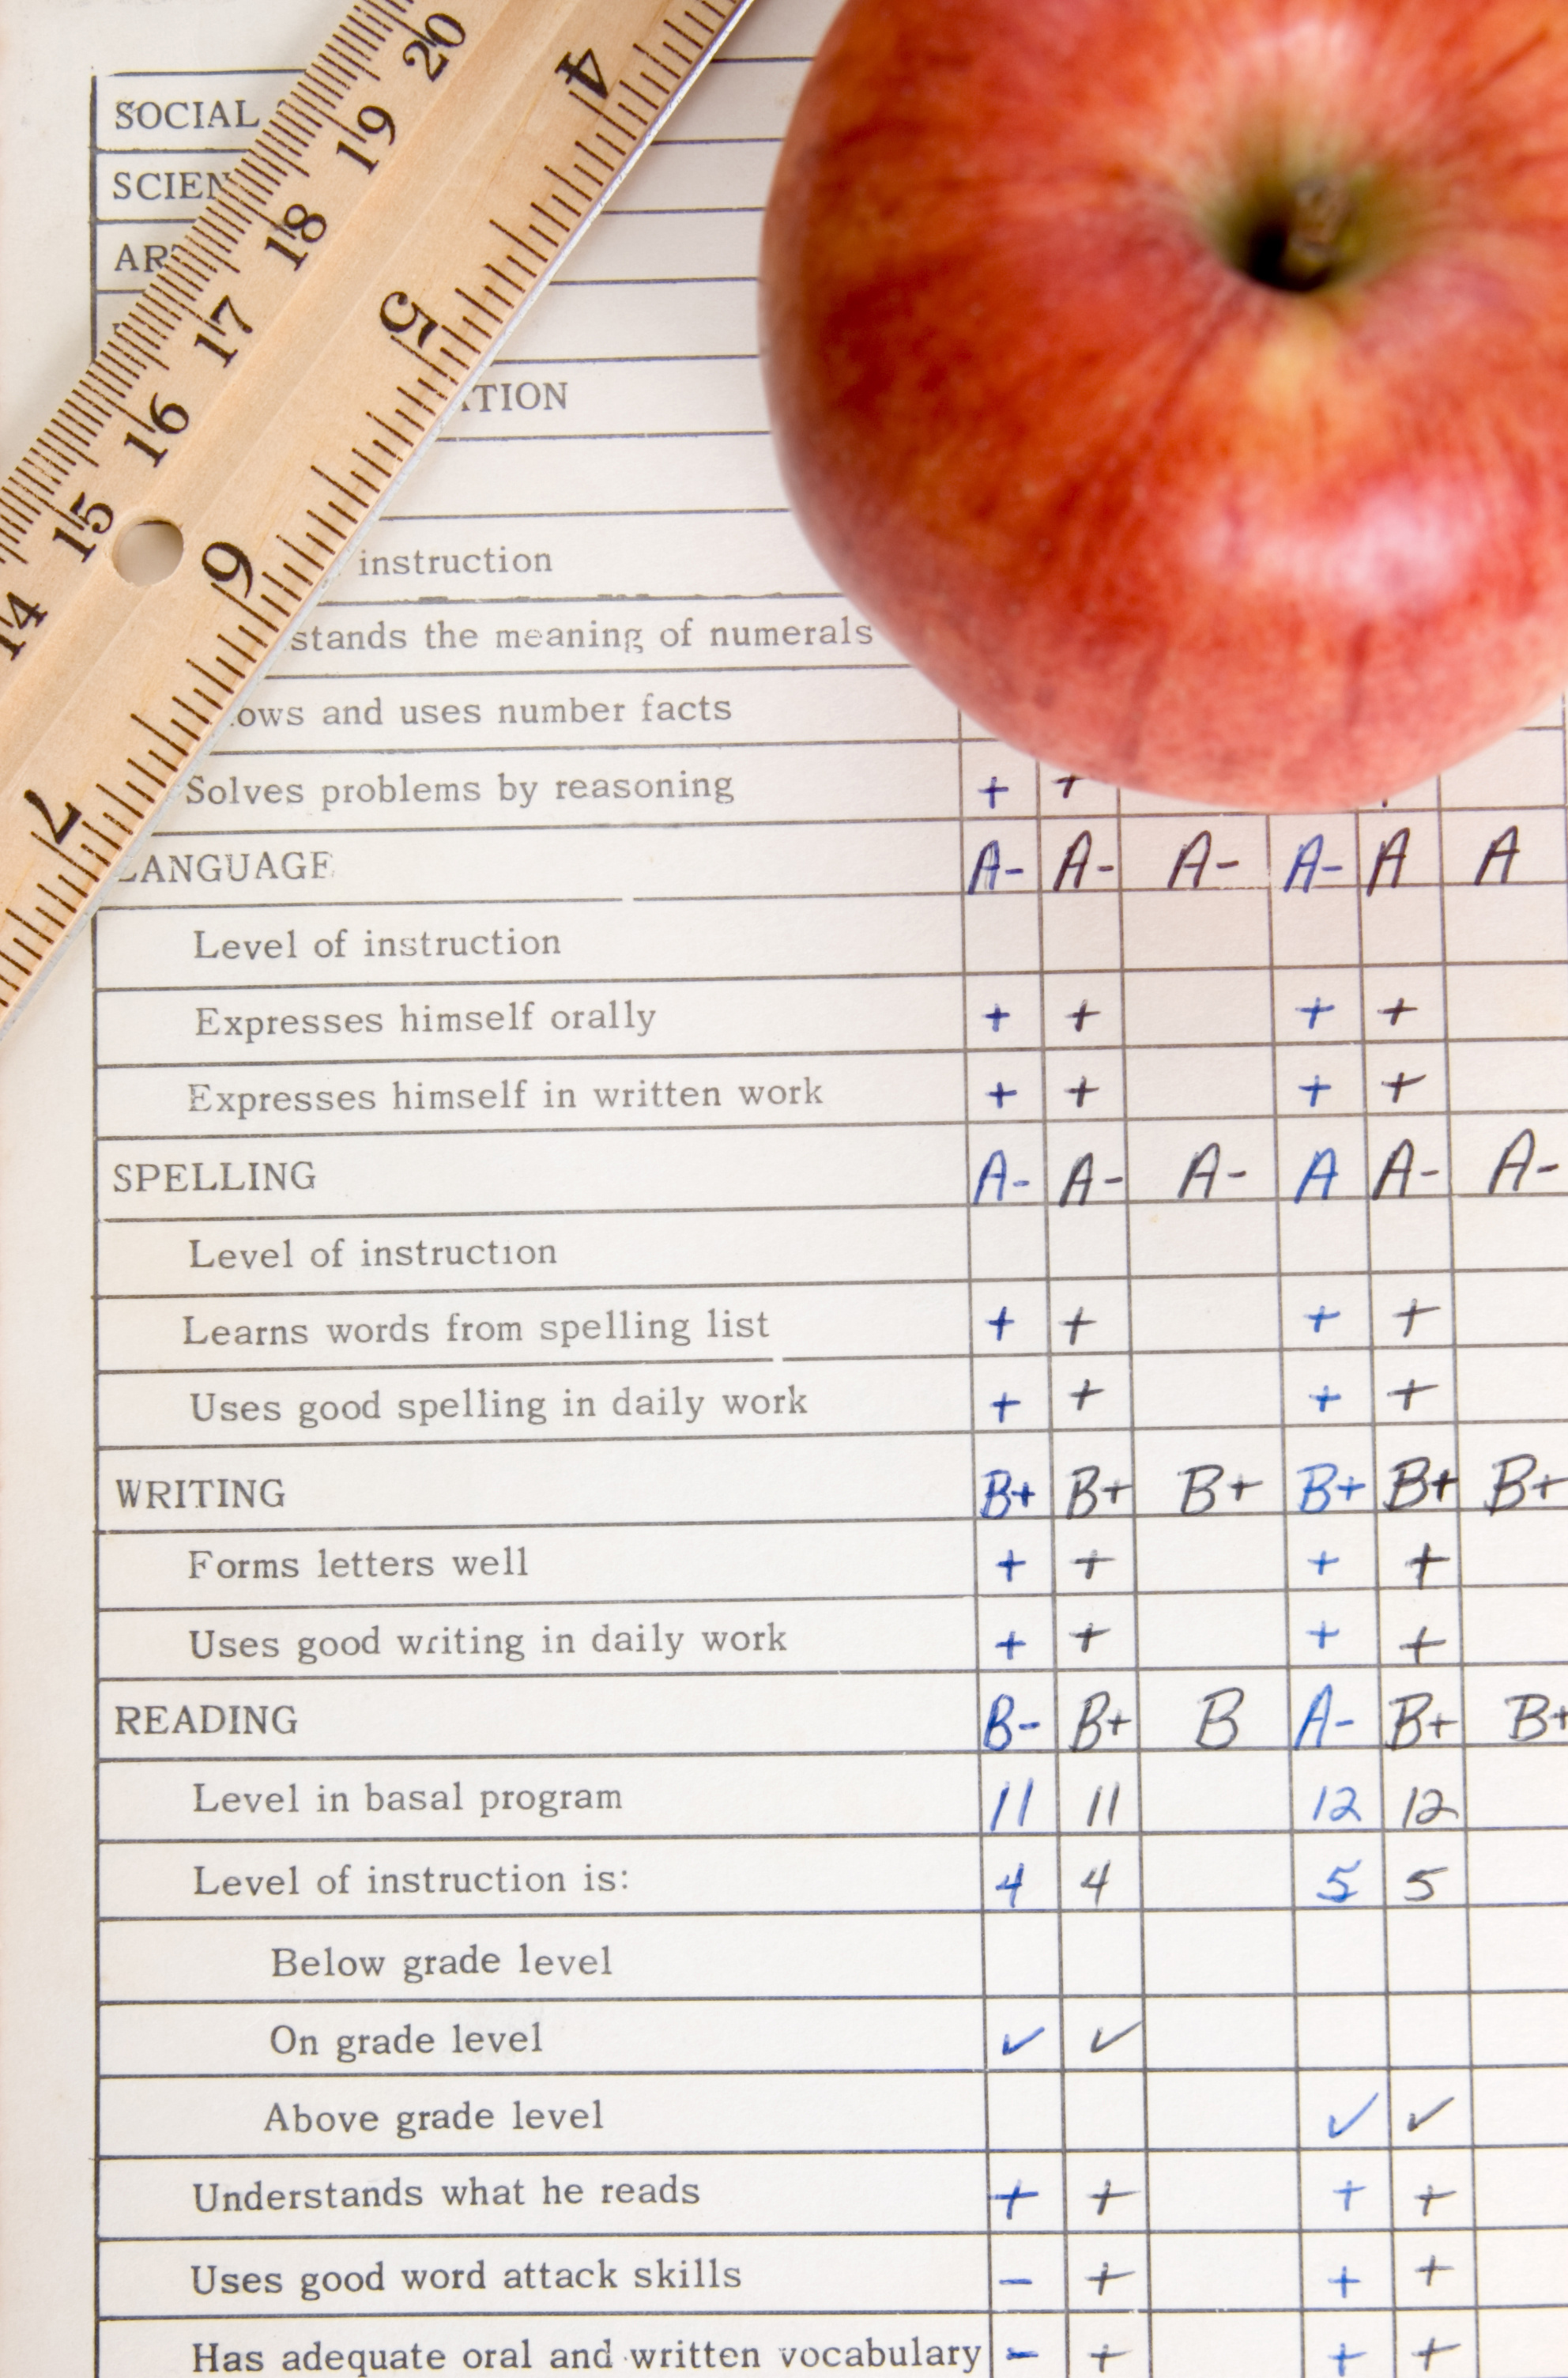 20
19
18
17
16
15
14
4
5
6
7
SOCIAL
instruction
stands the meaning of numerals
and uses number facts
Solves problems by reasoning + +
LANGUAGE A- A- A- A- A A
Level of instruction
Expresses himself orally + + + +
Expresses himself in written work + + + +
SPELLING A- A- A- A A- A-
Level of instruction
Learns words from spelling list + + + +
Uses good spelling in daily work + + + +
WRITING B+ B+ B+ B+ B+ B+
Forms letters well + + + +
Uses good writing in daily work + + + +
READING B- B+ B A- B+ B+
Level in basal program 11 11 12 12
Level of instruction is: 4 4 5 5
Below grade level
On grade level ✓ ✓
Above grade level ✓ ✓
Understands what he reads + + + +
Uses good word attack skills - + + +
Has adequate oral and written vocabulary - + + +